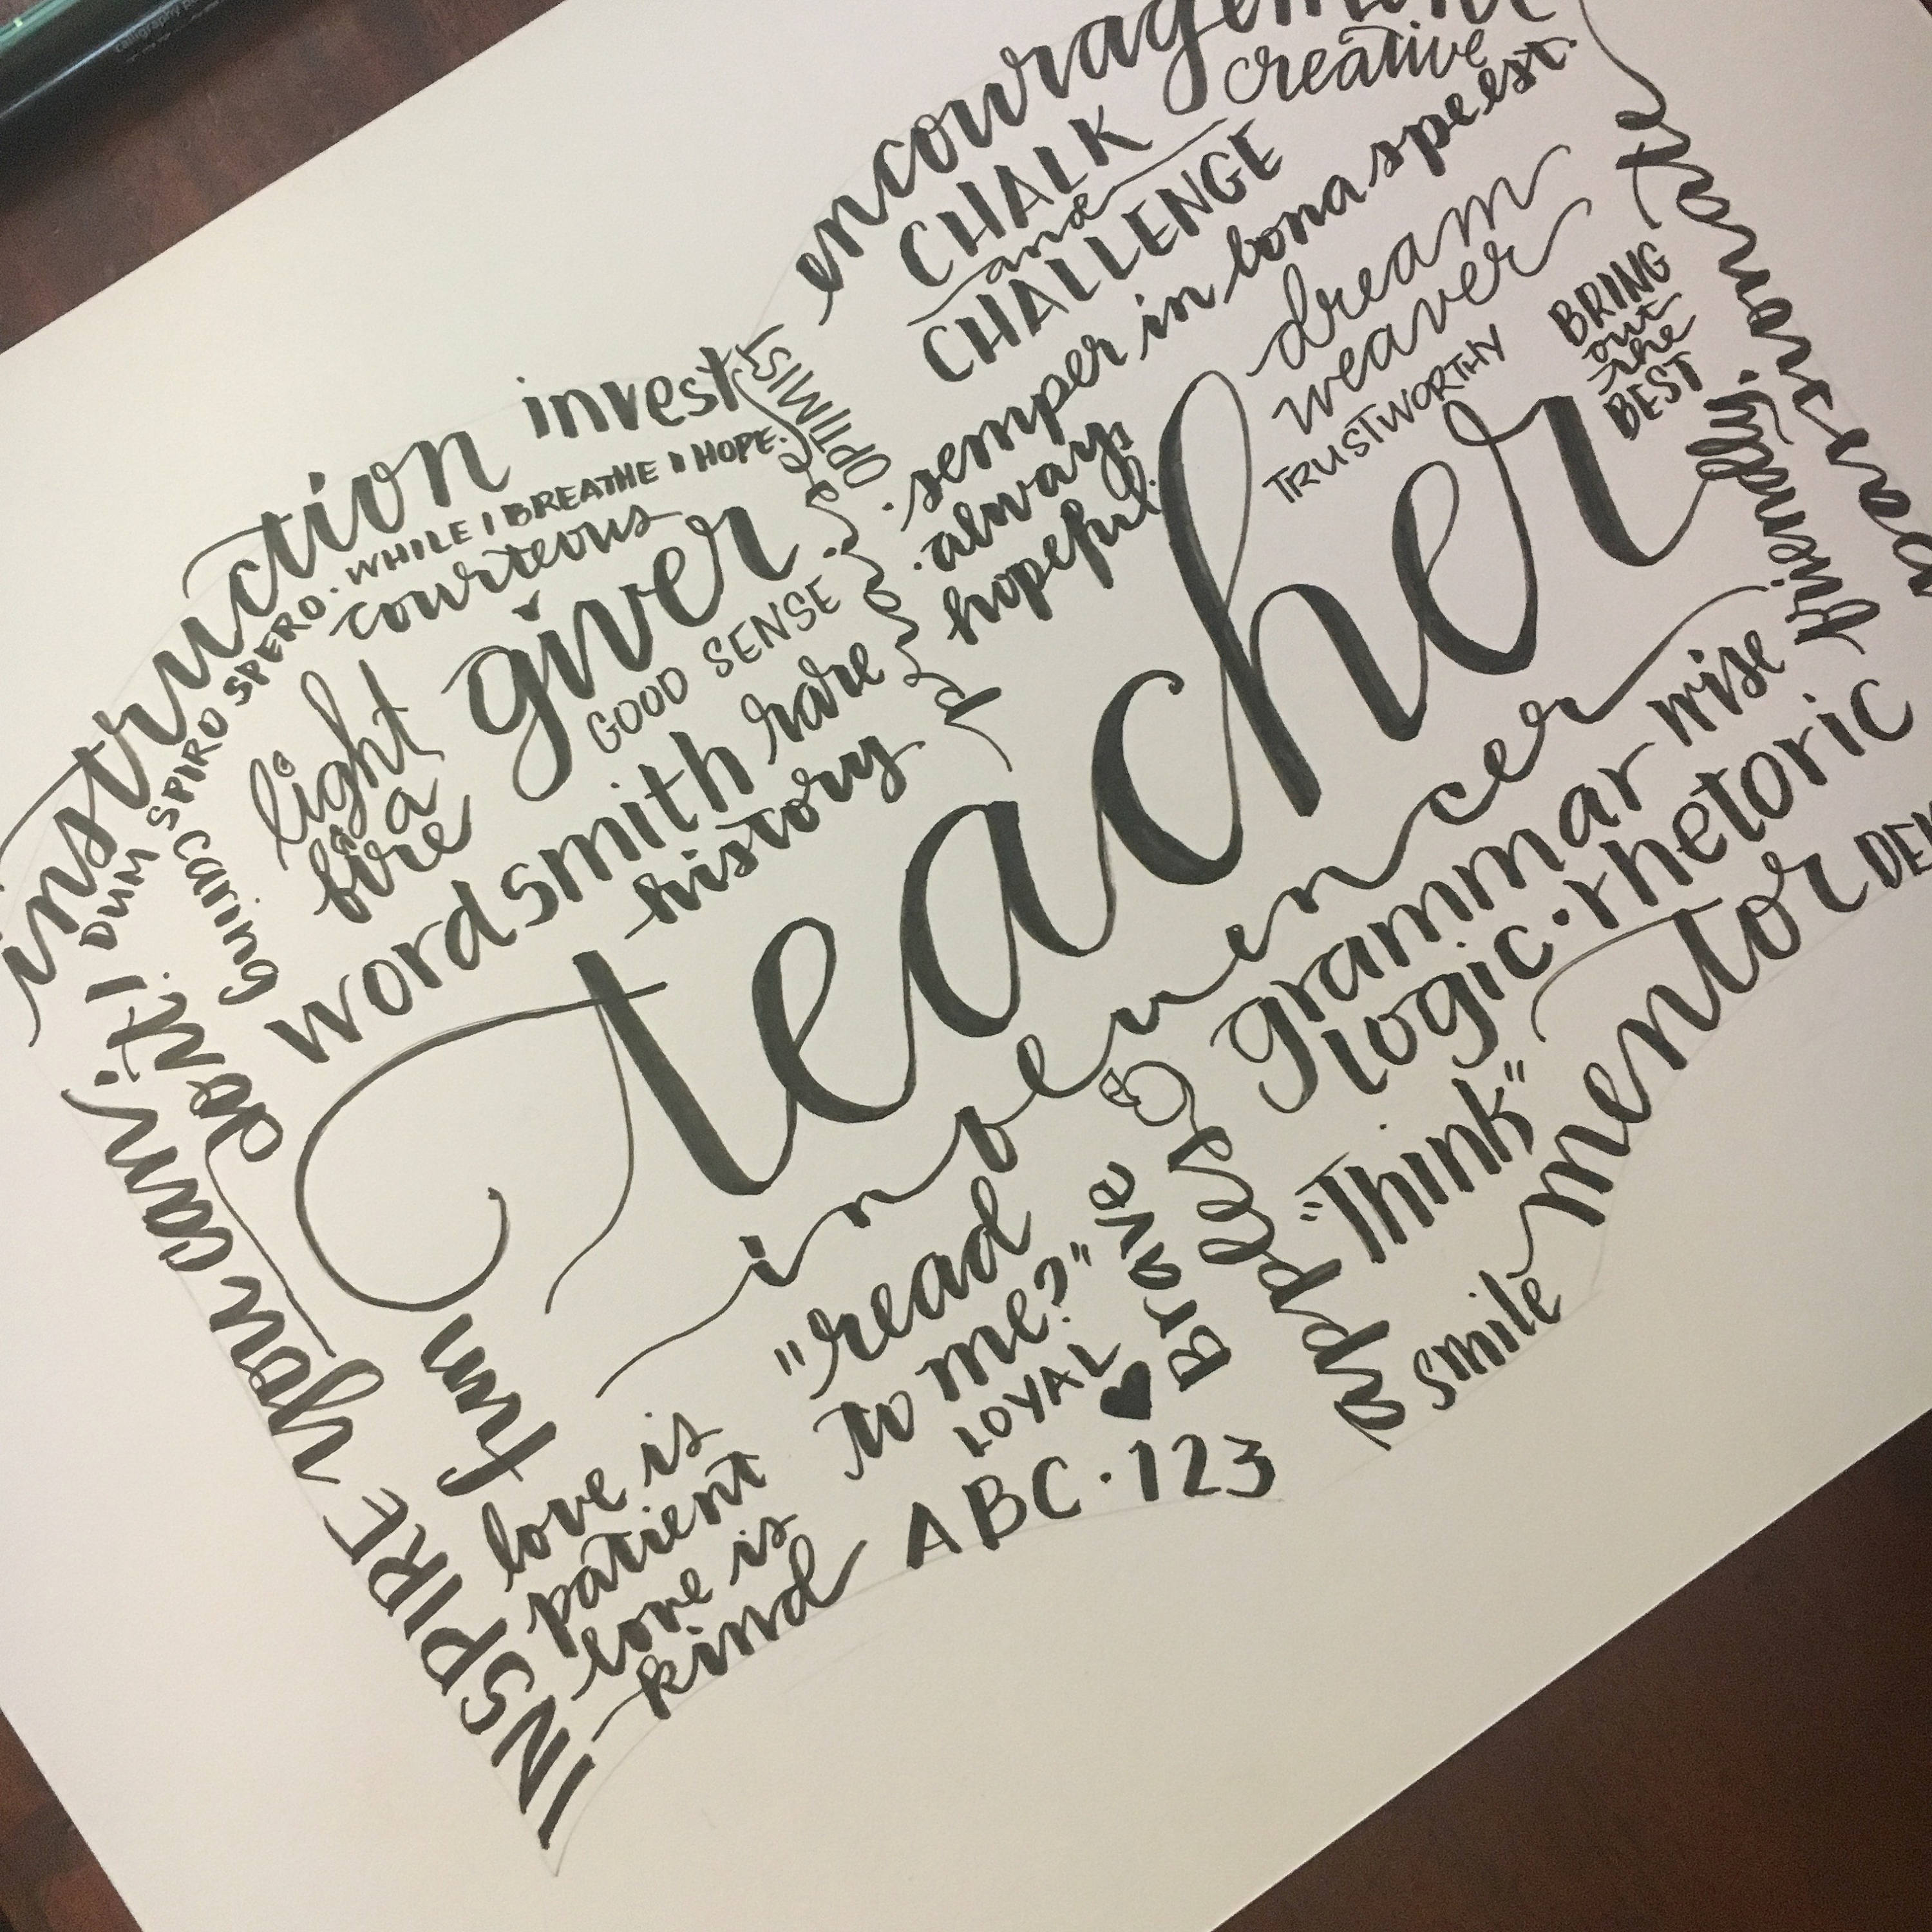 encouragement
creative
CHALK
and
CHALLENGE
semper in bona spe est.
always
hopeful
dream
weaver
TRUSTWORTHY
BRING
out
the
BEST
friendly
instruction
invest
OPTIMIST
DUM SPIRO SPERO. WHILE I BREATHE I HOPE.
courteous
light
a
fire
giver
GOOD SENSE
wordsmith
rare
history
teacher
influencer
you can!
INSPIRE
fun
love is
patient
love is
kind
"read
to me?"
LOYAL
Brave
ABC·123
apples
grammar
logic·rhetoric
wise
"Think"
mentor
smile